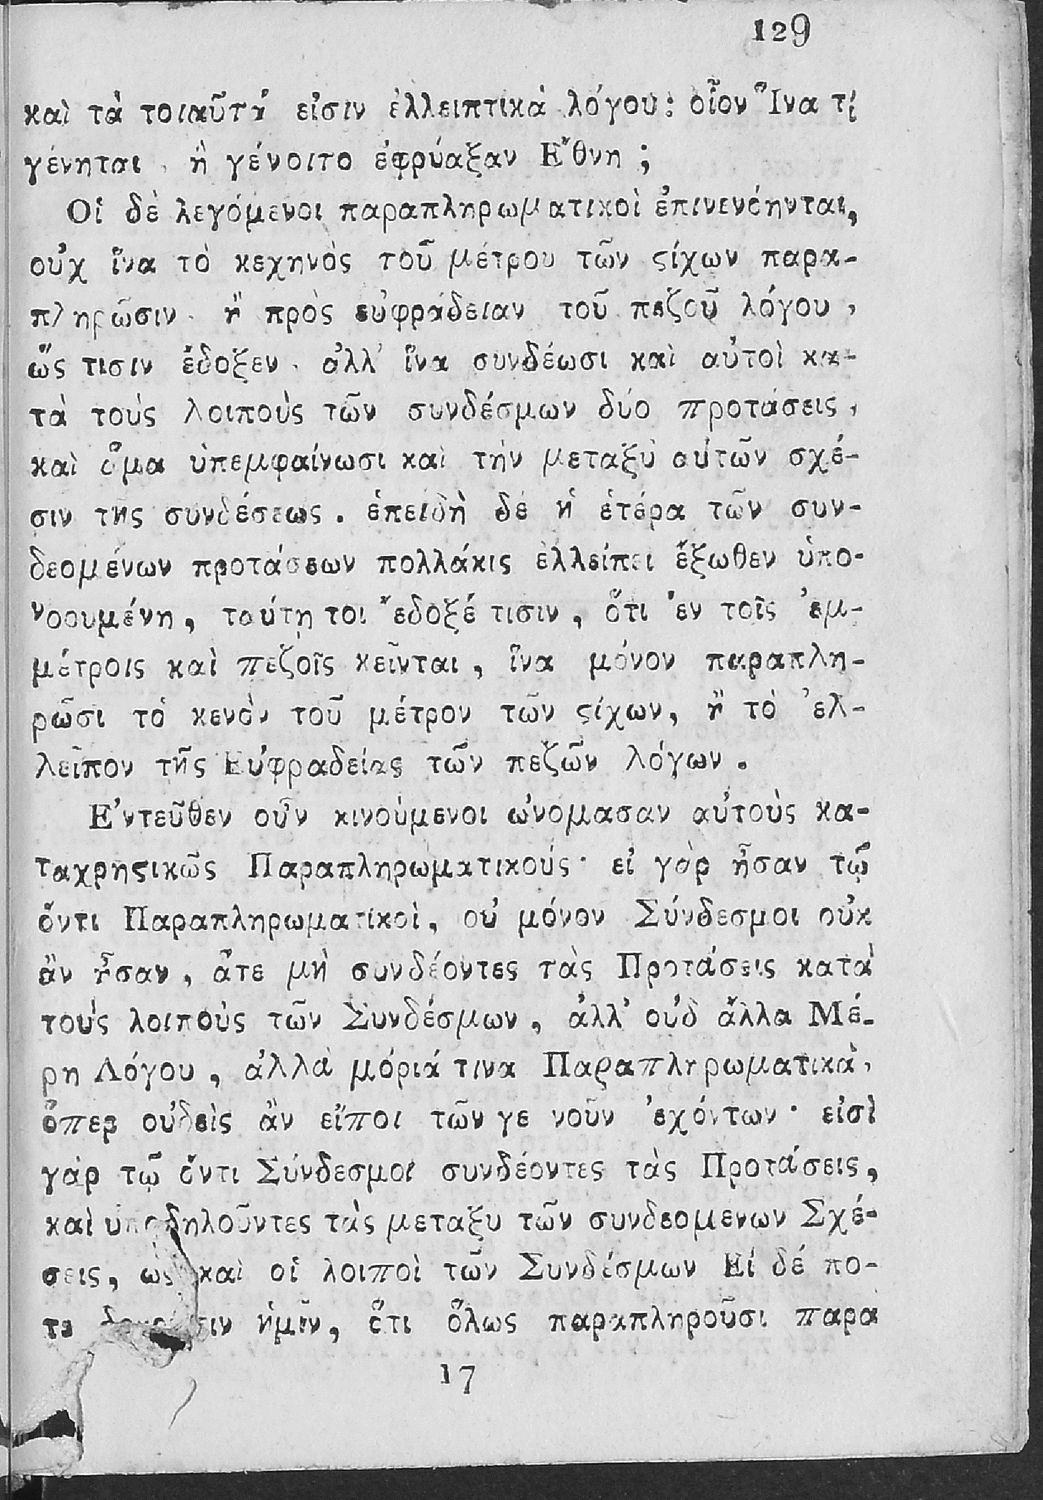 129
καὶ τὰ τοιαῦτά εἰσιν ἐλλειπτικὰ λόγου: οἷον Ἵνα τί
γένηται, ἢ γένοιτο ἐφρύαξαν Ἔθνη;
Οἱ δὲ λεγόμενοι παραπληρωματικοὶ ἐπινενόηνται,
οὐχ ἵνα τὸ κεχηνὸς τοῦ μέτρου τῶν ϛίχων παρα-
πληρῶσιν ἢ πρὸς εὐφράδειαν τοῦ πεζοῦ λόγου,
ὥς τισιν ἔδοξεν· ἀλλ' ἵνα συνδέωσι καὶ αὐτοὶ κα-
τὰ τοὺς λοιποὺς τῶν συνδέσμων δύο προτάσεις,
καὶ ἅμα ὑπεμφαίνωσι καὶ τὴν μεταξὺ αὐτῶν σχέ-
σιν τῆς συνδέσεως. ἐπειδὴ δὲ ἡ ἑτέρα τῶν συν-
δεομένων προτάσεων πολλάκις ἐλλείπει ἔξωθεν ὑπο-
νοουμένη, ταύτῃ τοι ἔδοξέ τισιν, ὅτι ἐν τοῖς ἐμ-
μέτροις καὶ πεζοῖς κεῖνται, ἵνα μόνον παραπλη-
ρῶσι τὸ κενὸν τοῦ μέτρον τῶν ϛίχων, ἢ τὸ ἐλ-
λεῖπον τῆς Εὐφραδείας τῶν πεζῶν λόγων.
Ἐντεῦθεν οὖν κινούμενοι ὠνόμασαν αὐτοὺς κα-
ταχρηϛικῶς Παραπληρωματικούς· εἰ γὰρ ἦσαν τῷ
ὄντι Παραπληρωματικοὶ, οὐ μόνον Σύνδεσμοι οὐκ
ἂν ἦσαν, ἅτε μὴ συνδέοντες τὰς Προτάσεις κατὰ
τοὺς λοιποὺς τῶν Συνδέσμων, ἀλλ' οὐδ ἄλλα Μέ-
ρη Λόγου, ἀλλὰ μόριά τινα Παραπληρωματικὰ,
ὅπερ οὐδεὶς ἂν εἴποι τῶν γε νοῦν ἐχόντων· εἰσὶ
γὰρ τῷ ὄντι Σύνδεσμοι συνδέοντες τὰς Προτάσεις,
καὶ ὑποδηλοῦντες τὰς μεταξυ τῶν συνδεομενων Σχέ-
σεις, ὡς καὶ οἱ λοιποὶ τῶν Συνδέσμων Εἰ δέ πο-
τε ἡμῖν, ὅτι ὅλως παραπληροῦσι παρα
17